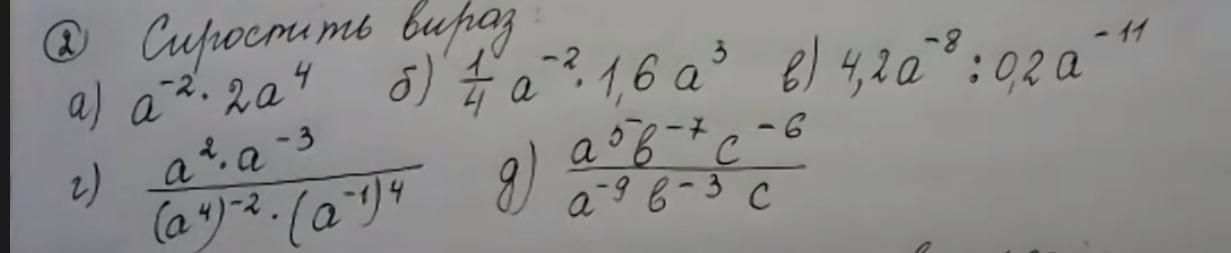 ② Спростить вираз:
а) a⁻² · 2a⁴ б) 1/4 a⁻² · 1,6a³ в) 4,2a⁻⁸ : 0,2a⁻¹¹
г) (a² · a⁻³)/((a⁴)⁻² · (a⁻¹)⁴) д) (a⁵b⁻⁷c⁻⁶)/(a⁻⁹b⁻³c)